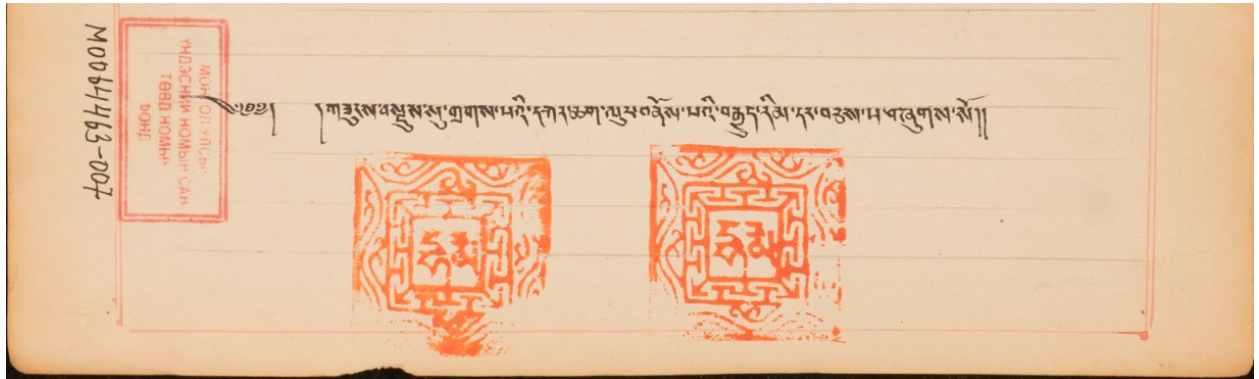 M0064463-007
МОНГОЛ УЛСЫН
ҮНДЭСНИЙ НОМЫН САН
ТӨВД НОМЫН
ФОНД
༄༅། །གཟུངས་བསྡུས་སུ་གྲགས་པའི་དཀར་ཆག་ པའི་བརྒྱུད་རིམ་དང་བཅས་པ་བཞུགས་སོ།།